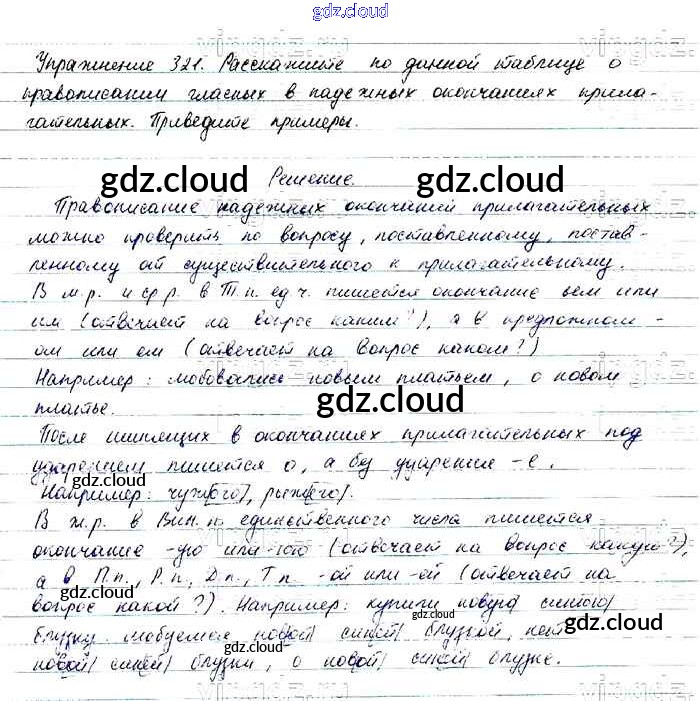 gdz.cloud
Упражнение 321. Расскажите по данной таблице о
правописании гласных в падежных окончаниях прила-
гательных. Приведите примеры.
gdz.cloud Решение. gdz.cloud
Правописание падежных окончаний прилагательных
можно проверить по вопросу, поставленному, постав-
ленному от существительного к прилагательному.
В м.р. и ср.р. в Т.п. ед.ч. пишется окончание
им (отвечает на вопрос каким?), а в предложном -
ом или ем (отвечает на вопрос каком?)
Например: любовались новым платьем, о новом
платье.
gdz.cloud
После шипящих в окончаниях прилагательных под
ударением пишется о, а без ударения -е.
gdz.cloud
Например: чужого, рыжего.
В ж.р. в Вин.п. единственного числа пишется
окончание -ую или -юю (отвечает на вопрос какую?),
а в П.п., Р.п., Д.п., Т.п. -ой или -ей (отвечает на
вопрос какой?). Например: купили новую синюю
gdz.cloud gdz.cloud gdz.cloud gdz.cloud
блузку, любуемся новой синей блузкой, нет
новой синей блузки, о новой синей блузке.